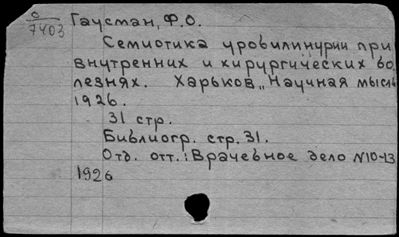 0
7403
Гаусман, Ф.О.
Семиотика уробилинурии при
внутренних и хирургических бо
лезнях. Харьков „Научная мысль
1926.
31 стр.
Библиогр. стр. 31.
Отд. отт.: Врачебное дело N10-13
1926